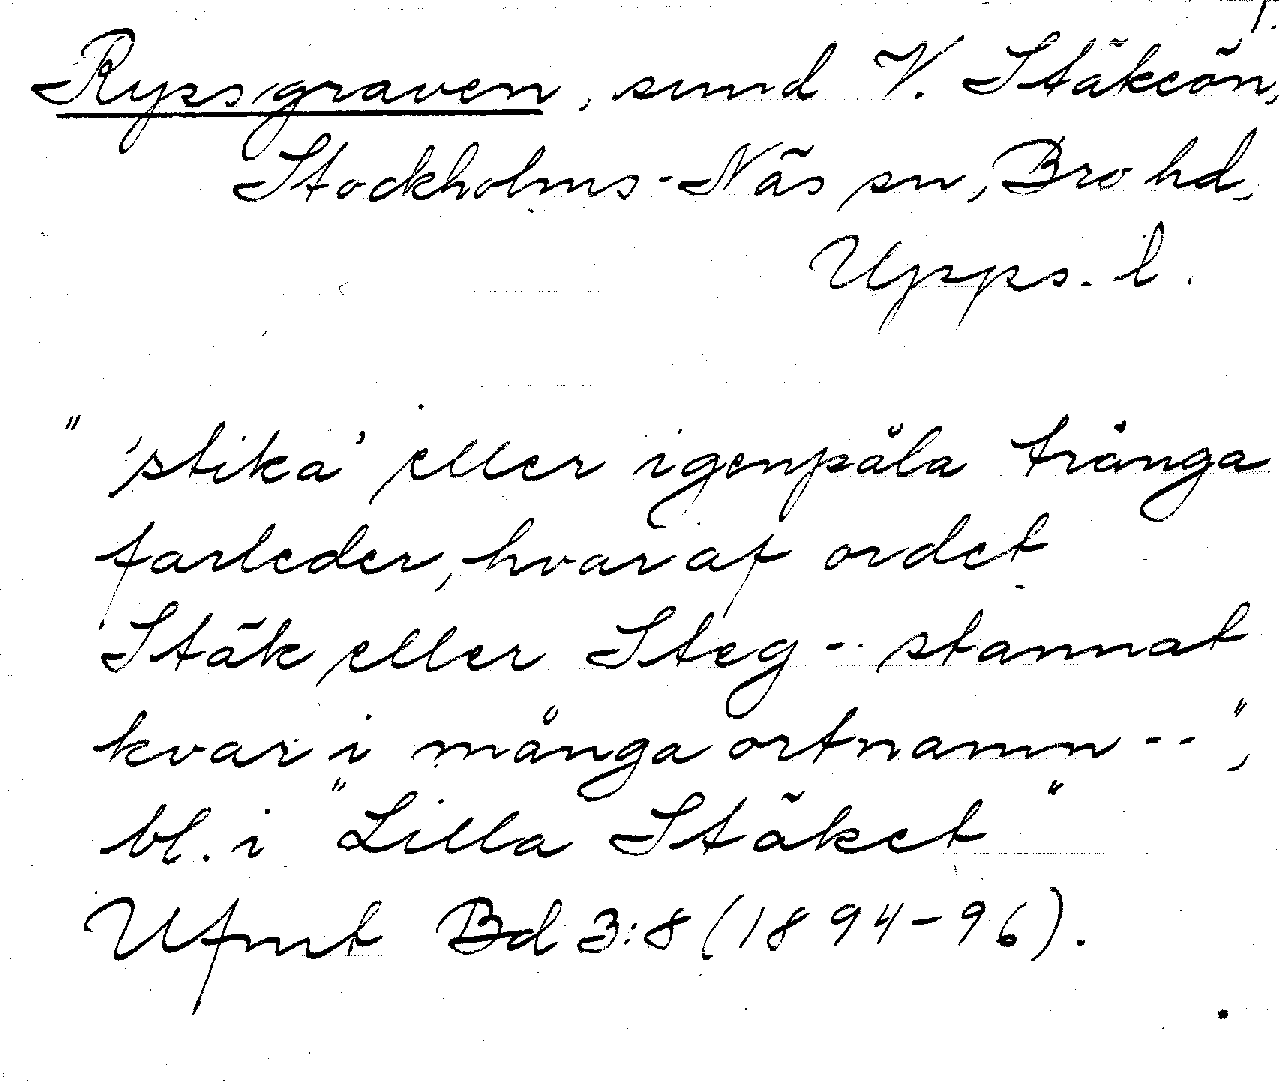 Ryssgraven, sund V. Stäkeön,
Stockholms-Näs sn, Bro hd,
Upps. l.
" 'stika' eller igenpåla trånga
farleder, hvaraf ordet
Stäk eller Steg -- stannat
kvar i många ortnamn -- ",
bl. i "Lilla Stäket"
Ufmt Bd 3:8 (1894-96).